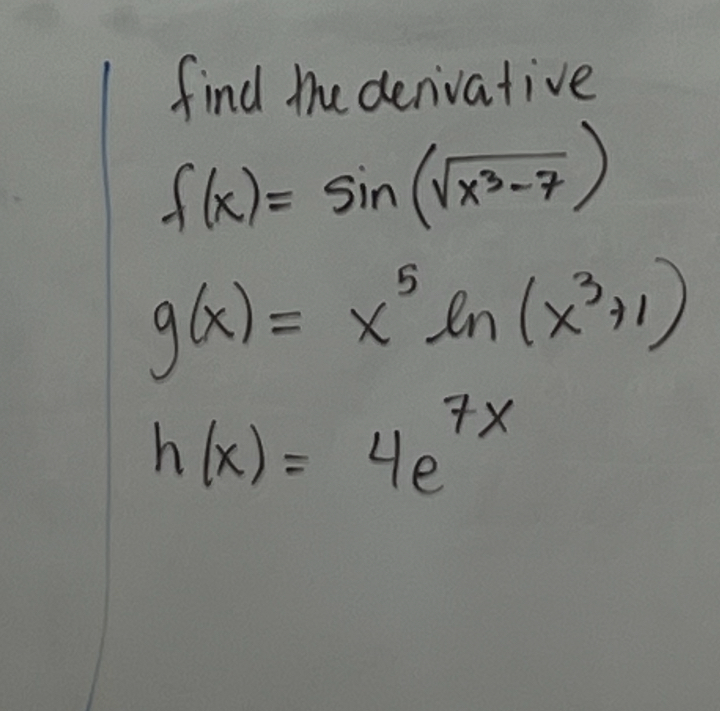 find the derivative
f(x) = sin(√(x³-7))
g(x) = x⁵ ln(x³+1)
h(x) = 4e⁷ˣ